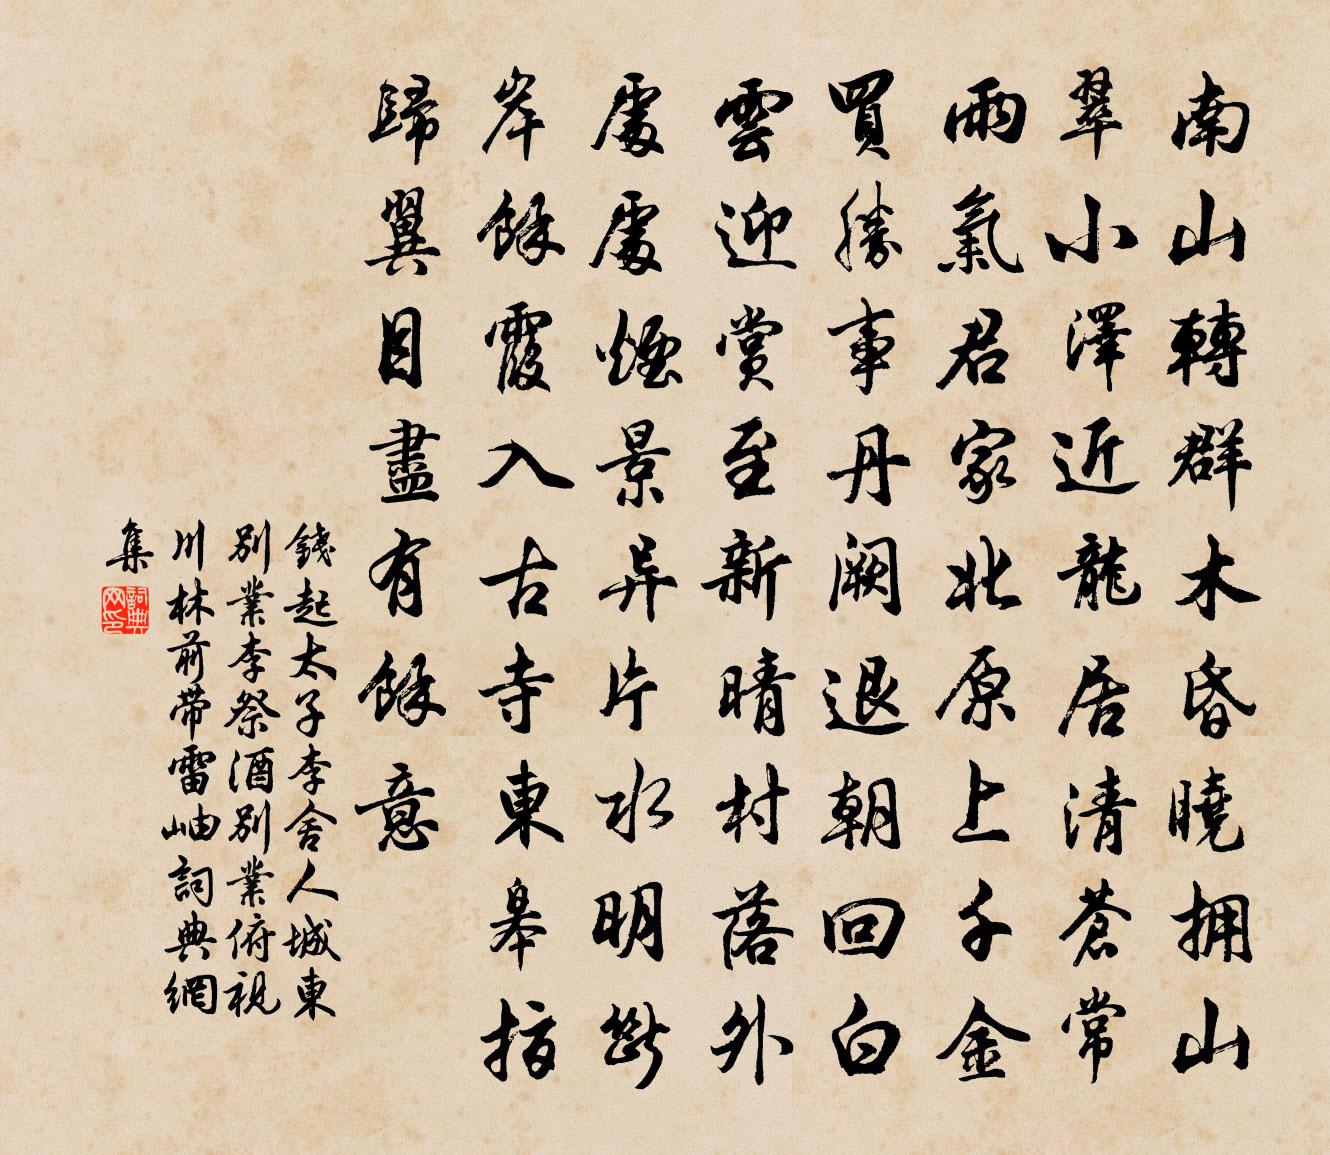 南山轉群木昏曉拥山
翠小澤近龍居清蒼常
雨氣君家北原上千金
買勝事丹阙退朝回白
雲迎賞至新晴村落外
處處煙景异片水明斷
岸餘霞入古寺東皋指
歸翼目盡有餘意
錢起太子李舍人城東
別業李祭酒別業俯視
川林前帶雷岫詞典網
集
詞典
网印